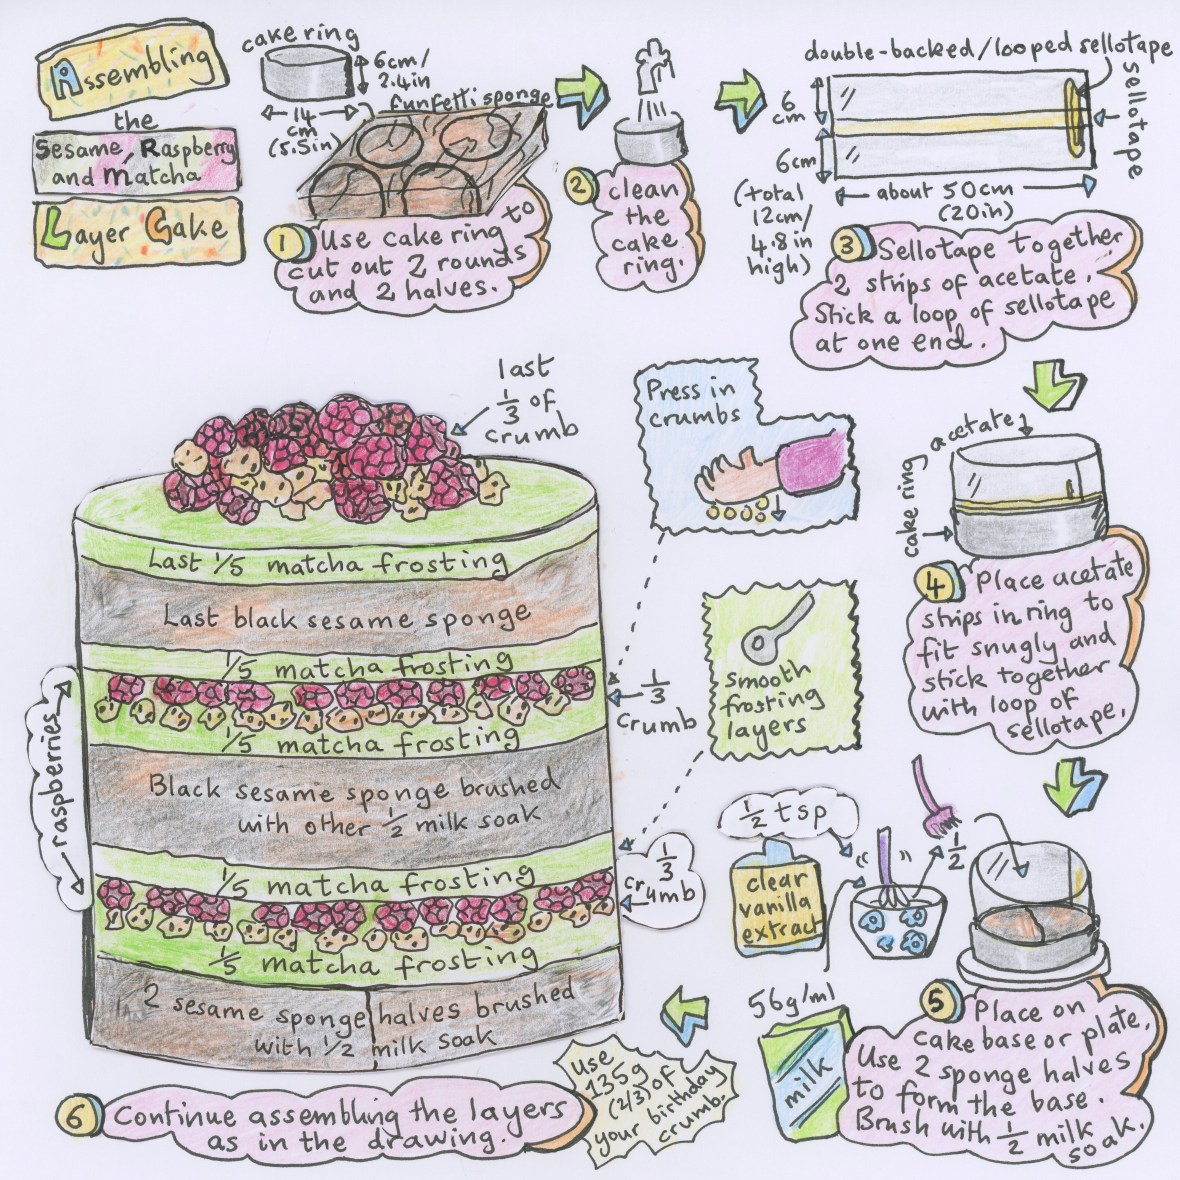 Assembling
the
Sesame, Raspberry
and Matcha
Layer Cake
cake ring
6cm/
2.4in
14
cm
(5.5in)
funfetti sponge
1 Use cake ring to
cut out 2 rounds
and 2 halves.
2 clean
the
cake
ring.
double-backed/looped sellotape
sellotape
6
cm
6cm
(total
12cm/
4.8in
high)
about 50cm
(20in)
3 Sellotape together
2 strips of acetate.
Stick a loop of sellotape
at one end.
acetate
cake ring
4 Place acetate
strips in ring to
fit snugly and
stick together
with loop of
sellotape.
1/2 tsp
clear
vanilla
extract
1/2
56g/ml
milk
5 Place on
cake base or plate.
Use 2 sponge halves
to form the base.
Brush with 1/2 milk
soak.
Press in
crumbs
smooth
frosting
layers
last
1/3 of
crumb
Last 1/5 matcha frosting
Last black sesame sponge
1/5 matcha frosting
1/3
crumb
1/5 matcha frosting
raspberries
Black sesame sponge brushed
with other 1/2 milk soak
1/5 matcha frosting
1/3
crumb
1/5 matcha frosting
2 sesame sponge halves brushed
with 1/2 milk soak
Use
135g
(2/3) of
your birthday
crumb.
6 Continue assembling the layers
as in the drawing.